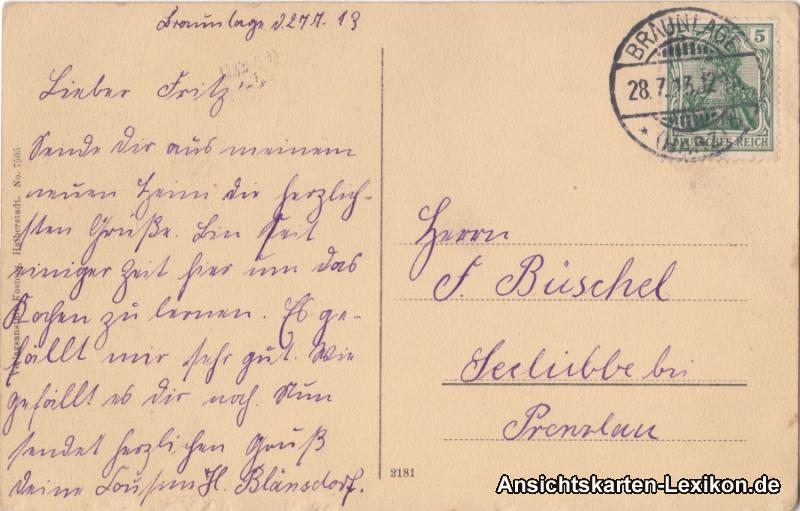 Braunlage d. 27.7.13
Lieber Fritz!
Sende Dir aus meinem
neuen Heim die herzlich-
sten Grüße. Bin seit
einiger Zeit hier um das
Kochen zu lernen. Es ge-
fällt mir sehr gut. Wie
gefällt es dir noch. Nun
sendet herzlichen Gruß
deine Cousine H. Blänsdorf.
Verlagsanstalt Kosmos, Halberstadt. No. 7505
BRAUNLAGE
28.7.13.12
* (HARZ)
5
DEUTSCHES REICH
Herrn
F. Büschel
Seelübbe bei
Prenzlau
2181
Ansichtskarten-Lexikon.de